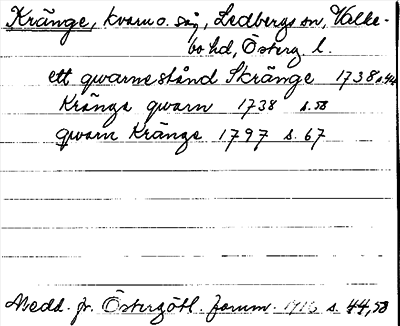 Kränge, kvarn o. såg, Ledbergs sn, Valke-
bo hd, Österg. l.
ett qwarnestånd Skränge 1738 s. 44
Krånge qwarn 1738 s. 58
qwarn Kränge 1797 s. 67
Medd. fr. Östergötl. fornm. 1916 s. 44, 58